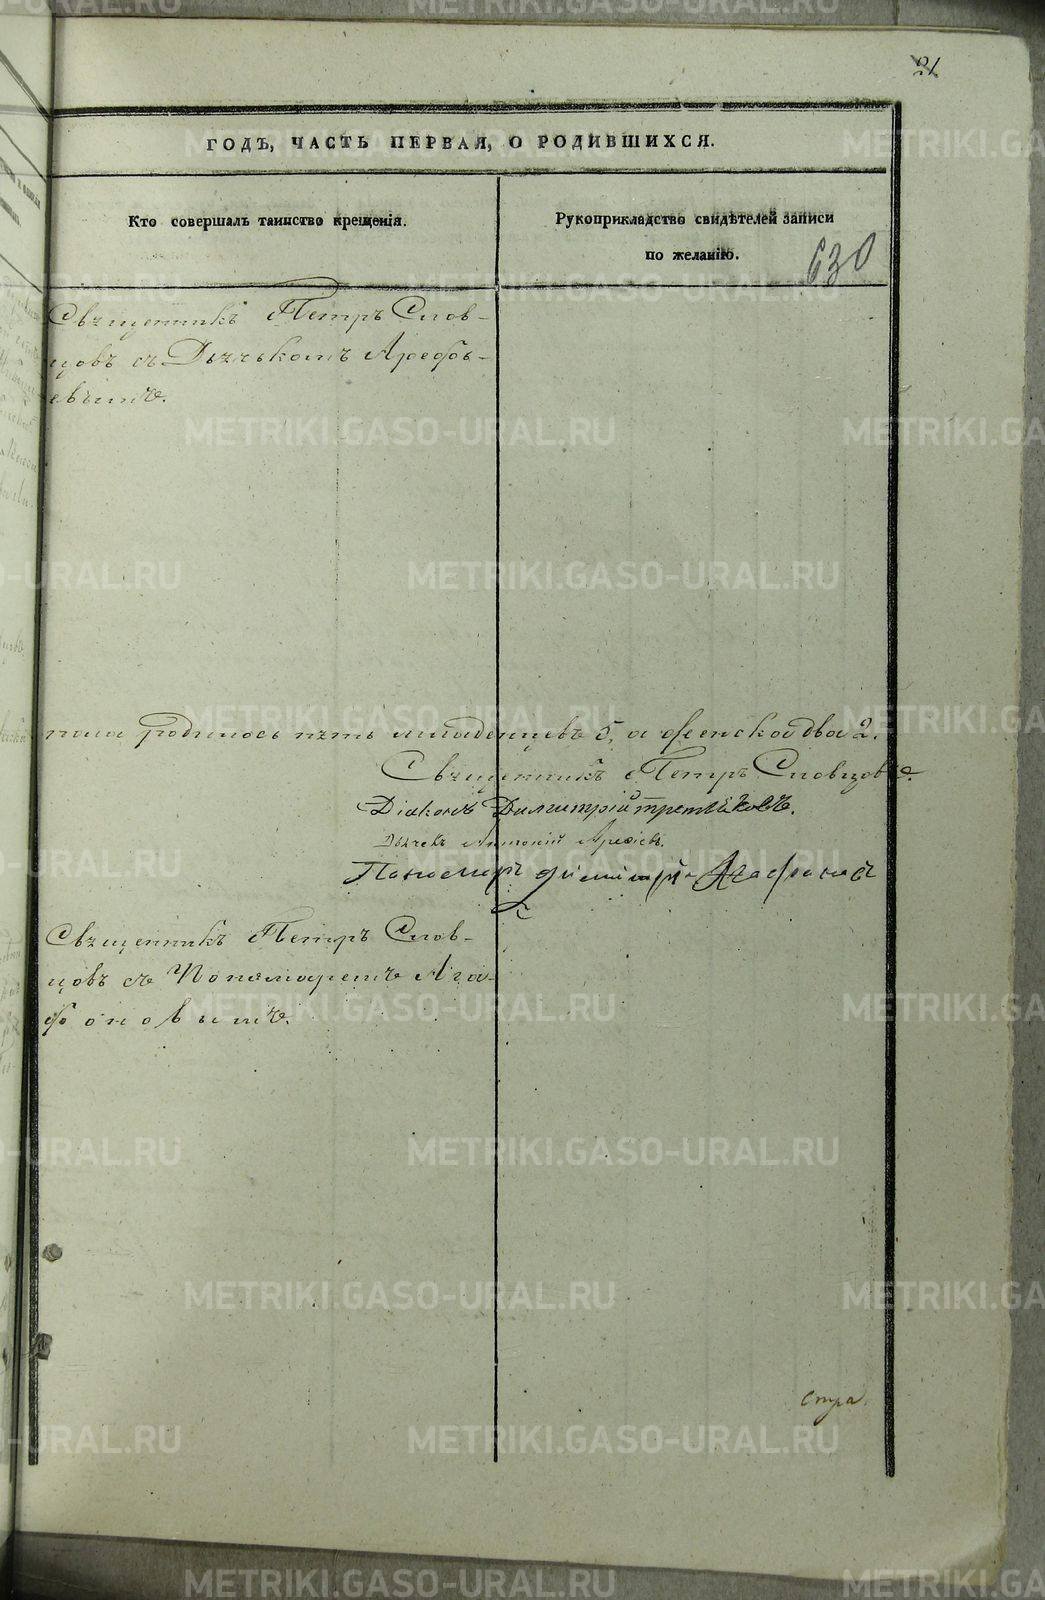 ГОДЪ, ЧАСТЬ ПЕРВАЯ, О РОДИВШИХСЯ.
Кто совершалъ таинство крещенія.
Рукоприкладство свидѣтелей записи
по желанію.
630
Священникъ Петръ Слов-
цовъ съ Дьячькомъ Арефь-
евымъ.
пола родилось пять младенцевъ 5, а женска два 2.
Священникъ Петръ Словцовъ.
Діаконъ Димитрій Третьяковъ.
Дьячекъ Антоній Арефьевъ.
Пономарь Димитрій Агафоновъ
Священникъ Петръ Слов-
цовъ съ Пономаремъ Ага-
фоновымъ.
METRIKI.GASO-URAL.RU